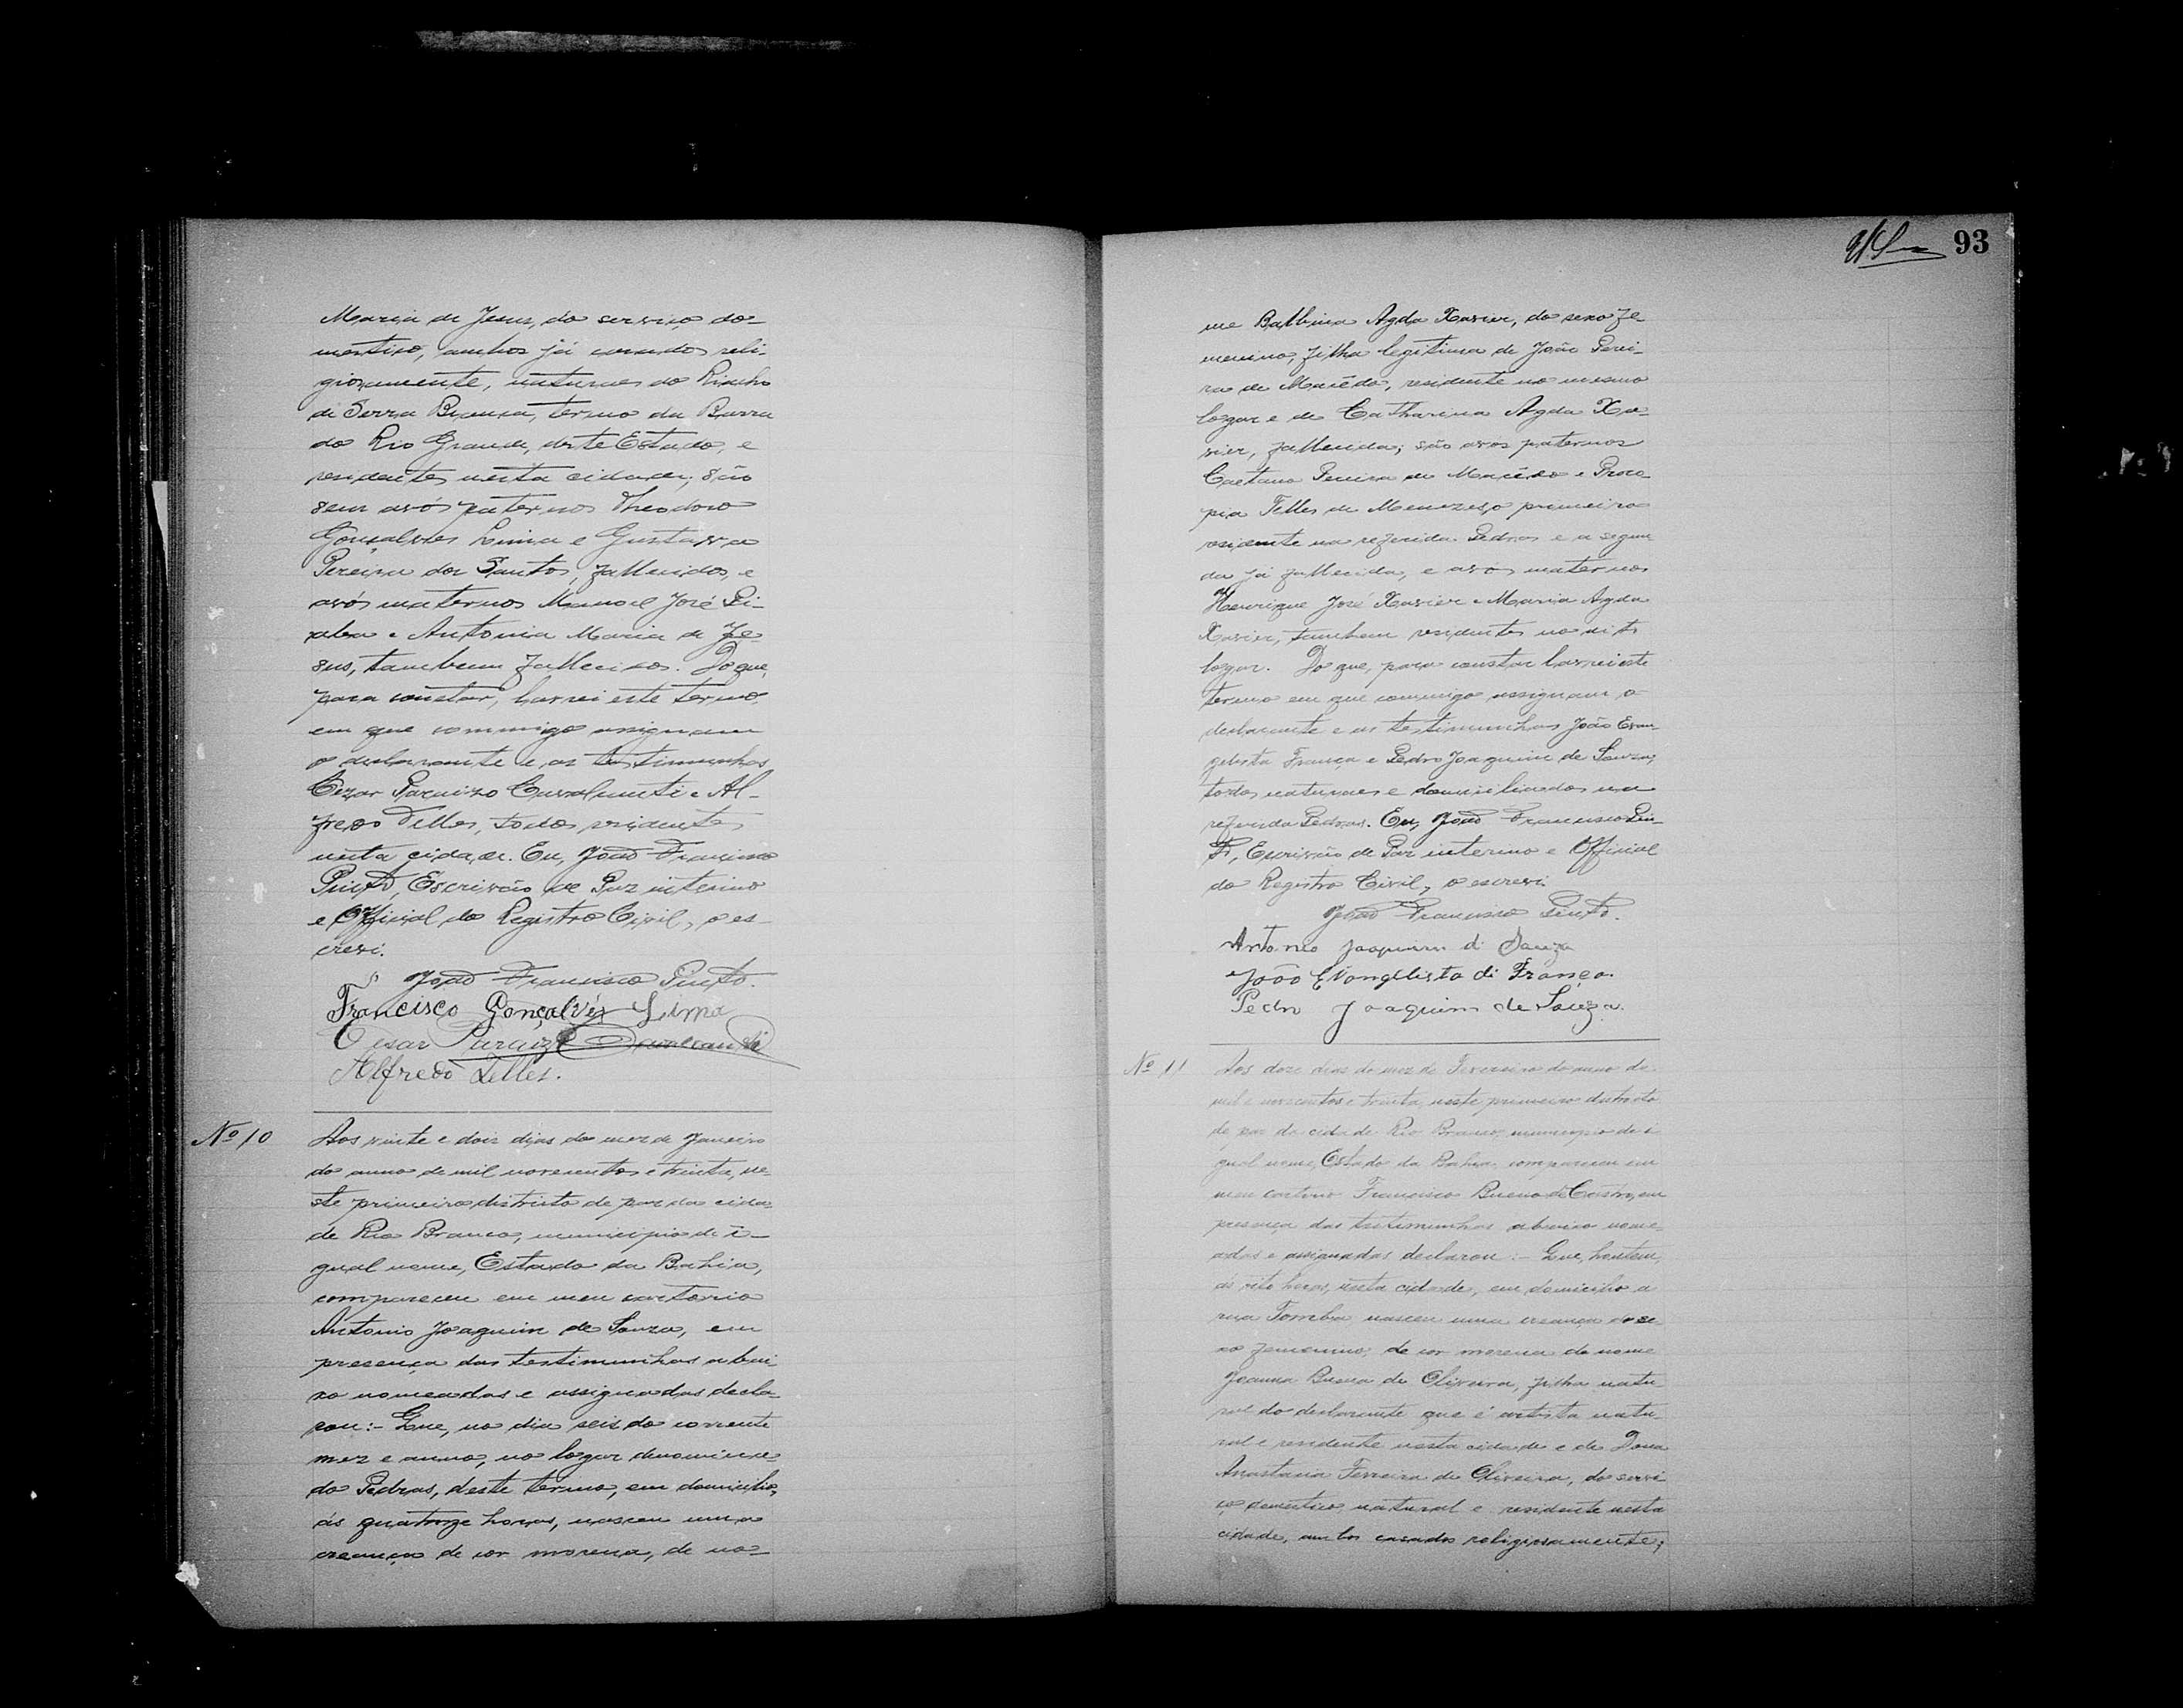 Maria de Jesus, do serviço do-
mestico, ambos já casados reli-
giosamente, naturaes do Riacho
de Serra Branca, termo da Barra
do Rio Grande, deste Estado, e
residentes nesta cidade; são
seus avós paternos Theodoro
Gonçalves Lima e Gustava
Pereira dos Santos, fallecidos, e
avós maternos Manoel José
e Antonia Maria de Je-
sus, tambem fallecidos. Do que,
para constar, lavrei este termo,
em que commigo assignam
o declarante e as testimunhas
Cezar Paraizo Cavalcanti e Al-
fredo Telles, todos residentes
nesta cidade. Eu, João Francisco
Pinto, Escrivão de Paz interino
e Official do Registro Civil, o es-
crevi.
João Francisco Pinto.
Francisco Gonçalves Lima
Cesar Paraizo Cavalcanti
Alfredo Telles.
Nº 10
Aos vinte e dois dias do mez de Janeiro
do anno de mil novecentos e trinta, ne-
ste primeiro districto de paz da cida-
de Rio Branco, municipio de i-
gual nome, Estado da Bahia,
compareceu em meu cartorio
Antonio Joaquim de Souza, em
presença das testimunhas abai-
xo nomeadas e assignadas decla-
rou:- Que, no dia seis do corrente
mez e anno, no logar denomina-
do Pedras, deste termo, em domicilio,
ás quatorze horas, nasceu uma
creança de cor morena, de no-
93
me Balbina Agda Xavier, do sexo fe-
menino, filha legitima de João Perei-
ra de Macêdo, residente no mesmo
logar e de Catharina Agda Xa-
vier, fallecida; são avos paternos
Caetano Pereira de Macêdo e Proco-
pia Telles de Menezes, o primeiro
residente na referida Pedras e a segun
da já fallecida, e avós maternos
Henrique José Xavier e Maria Agda
Xavier, tambem residentes no dito
logar. Do que, para constar lavrei este
termo em que commigo assignam o
declarante e as testimunhas João Evan-
gelista França e Pedro Joaquim de Souza,
todos naturaes e domiciliados na
referida Pedras. Eu, João Francisco Pin-
to, Escrivão de Paz interino e Official
do Registro Civil, o escrevi.
João Francisco Pinto.
Antonio Joaquim di Souza
João Evangelista di França.
Pedro Joaquim de Souza.
Nº 11
Aos doze dias do mez de Fevereiro do anno de
mil e novecentos e trinta, neste primeiro districto
de paz da cidade Rio Branco, municipio de i-
gual nome, Estado da Bahia, compareceu em
meu cartorio Francisco Bueno de Castro, em
presença das testimunhas abaixo nome-
adas e assignadas declarou:- Que, hontem,
ás oito horas, nesta cidade, em domicilio a
rua Tomba nasceu uma creança do se-
xo femenino, de cor morena de nome
Joanna Buena de Oliveira, filha natu-
ral do declarante que é artista natu-
ral e residente nesta cidade e de Dona
Anastacia Ferreira de Oliveira, do servi
ço domestico, natural e residente nesta
cidade, ambos casados religiosamente;